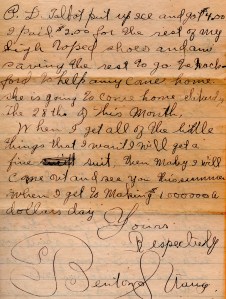 P. D. Talbot put up ice and got $4.00
I paid $2.00 for the rest of my
high toped shoes and am
saving the rest to go to Rock-
ford to help amy come home
she is going to come home
the 28th of this Month.
When I get all of the little
things that I want I will get a
fine suit. Then Maby I will
Come out and see you this summer
When I get to Making $1,000000 a
dollars day
Yours
Respectfuly
Benton